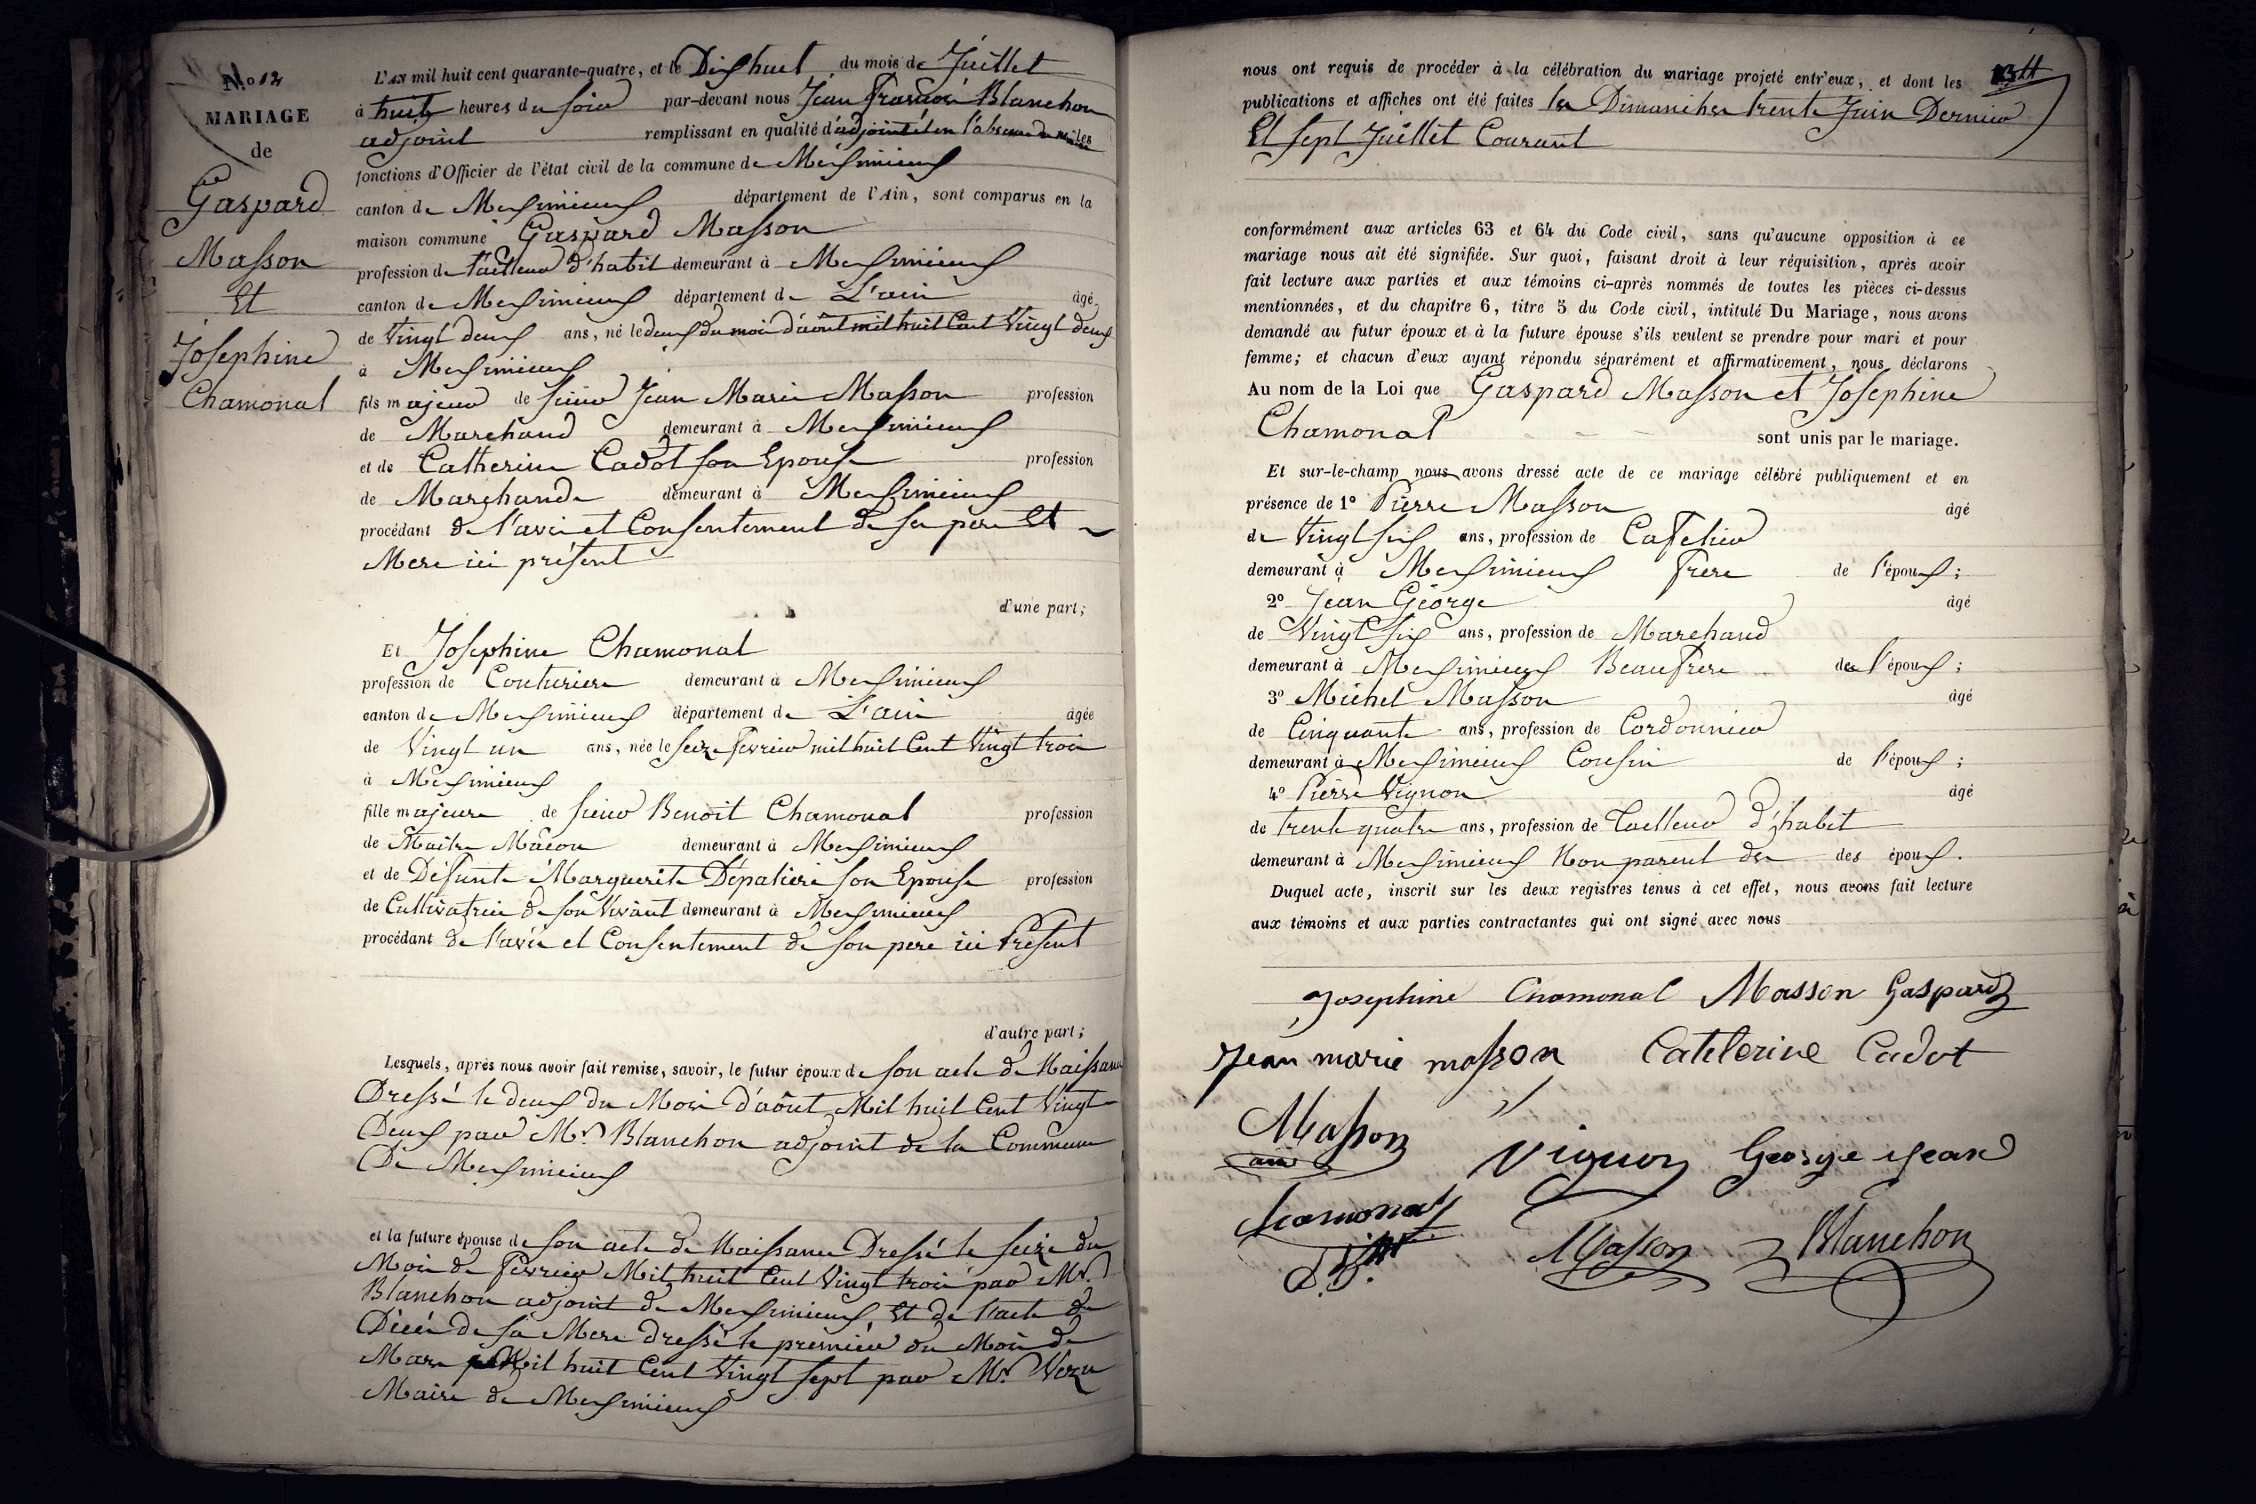 No 12
MARIAGE
de
Gaspard
Masson
Et
Josephine
Chamonal
L'AN mil huit cent quarante-quatre, et le Dixhuit du mois de Juillet
à huit heures du soir par-devant nous Jean François Blanchon
adjoint remplissant en qualité d'adjoint et en l'absence du maire les
fonctions d'Officier de l'état civil de la commune de Meximieux
canton de Meximieux département de l'Ain, sont comparus en la
maison commune Gaspard Masson
profession de tailleur d'habit demeurant à Meximieux
canton de Meximieux département de L'ain âgé
de Vingt deux ans, né le deux du mois d'août mil huit Cent Vingt deux
à Meximieux
fils majeur de sieur Jean Marie Masson profession
de Marchand demeurant à Meximieux
et de Catherine Cadot son Epouse profession
de Marchande demeurant à Meximieux
procédant de l'avis et Consentement de ses pere Et
Mere ici présent
d'une part;
Et Josephine Chamonal
profession de Couturiere demeurant à Meximieux
canton de Meximieux département de L'ain âgée
de Vingt un ans, née le seize fevrier mil huit Cent Vingt trois
à Meximieux
fille majeure de sieur Benoit Chamonal profession
de Maitre Macon demeurant à Meximieux
et de Défunte Marguerite Dépalière son Epouse profession
de Cultivatrice de son Vivant demeurant à Meximieux
procédant de l'avis et Consentement de son pere ici Présent
d'autre part;
Lesquels, après nous avoir fait remise, savoir, le futur époux de son acte de Naissance
Dressé le deux du Mois d'août Mil huit Cent Vingt
Deux par Mr Blanchon adjoint de la Commune
De Meximieux
et la future épouse de son acte de Naissance Dressé le seize du
Mois de Fevrier Mil huit Cent Vingt trois par Mr
Blanchon adjoint de Meximieux, Et de l'acte de
Décès de sa Mere dressé le premier du Mois de
Mars Mil huit Cent Vingt sept par Mr
Maire de Meximieux
nous ont requis de procéder à la célébration du mariage projeté entr'eux, et dont les
publications et affiches ont été faites les Dimanches trente Juin Dernier
Et sept Juillet Courant
conformément aux articles 63 et 64 du Code civil, sans qu'aucune opposition à ce
mariage nous ait été signifiée. Sur quoi, faisant droit à leur réquisition, après avoir
fait lecture aux parties et aux témoins ci-après nommés de toutes les pièces ci-dessus
mentionnées, et du chapitre 6, titre 5 du Code civil, intitulé Du Mariage, nous avons
demandé au futur époux et à la future épouse s'ils veulent se prendre pour mari et pour
femme; et chacun d'eux ayant répondu séparément et affirmativement, nous déclarons
Au nom de la Loi que Gaspard Masson et Josephine
Chamonal sont unis par le mariage.
Et sur-le-champ nous avons dressé acte de ce mariage célébré publiquement et en
présence de 1° Pierre Masson âgé
de Vingt six ans, profession de Cafetier
demeurant à Meximieux frere de l'époux;
2° Jean George âgé
de Vingt six ans, profession de Marchand
demeurant à Meximieux Beaufrere de l'époux;
3° Michel Masson âgé
de Cinquante ans, profession de Cordonnier
demeurant à Meximieux Cousin de l'époux;
4° Pierre Vignon âgé
de trente quatre ans, profession de Tailleur d'habit
demeurant à Meximieux Non parent des des époux.
Duquel acte, inscrit sur les deux registres tenus à cet effet, nous avons fait lecture
aux témoins et aux parties contractantes qui ont signé avec nous
Josephine Chamonal Masson Gaspard
Jean marie masson Catelerine Cadot
Masson
Vignon George jean
Chamonal
Masson Blanchon